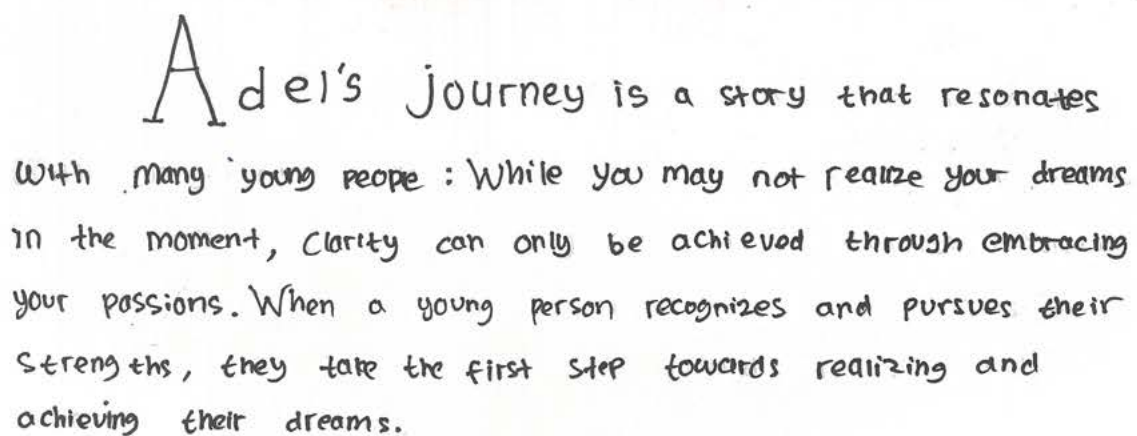 Adel's journey is a story that resonates
with many young peope : While you may not realize your dreams
in the moment, Clarity can only be achieved through embracing
your passions. When a young person recognizes and pursues their
strengths, they take the first step towards realizing and
achieving their dreams.